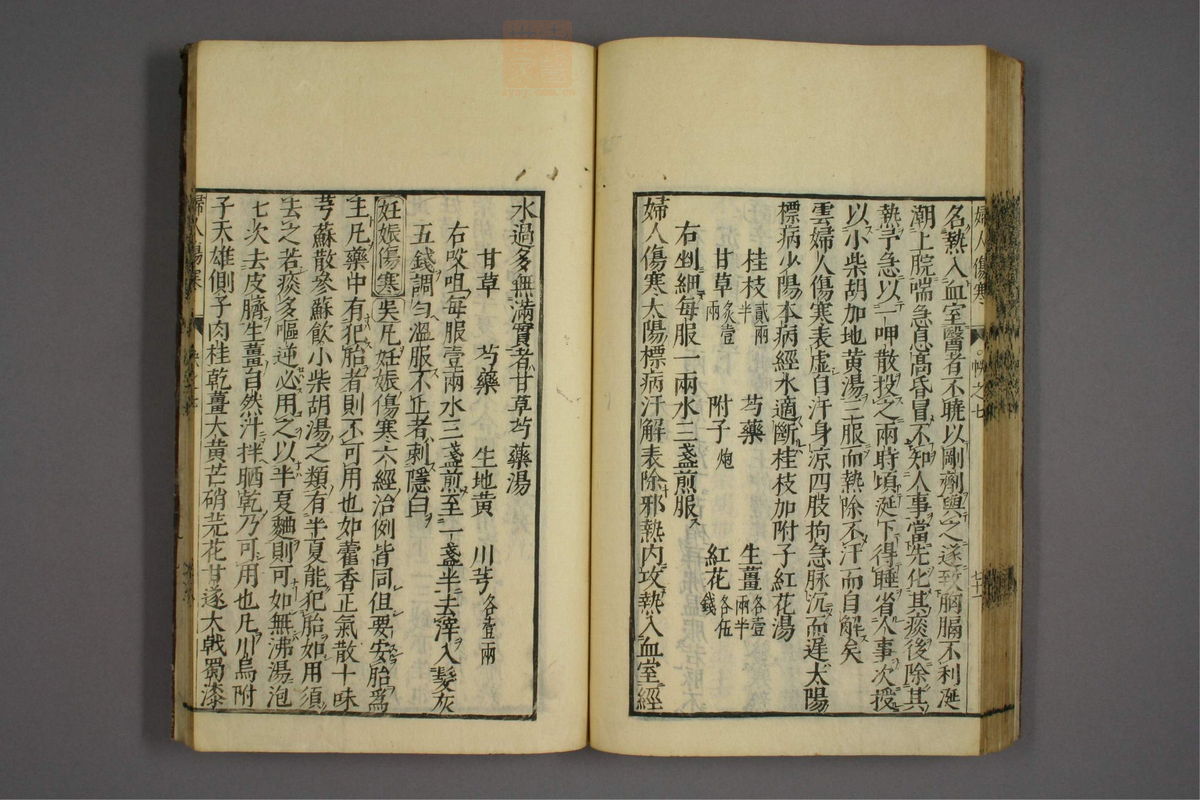 名熱入血室醫者不曉以剛劑與之遂致胸膈不利涎
潮上脘喘急息高昏冒不知人事當先化其痰後除其
熱予急以一呷散投之兩時頃涎下得睡省人事次授
以小柴胡加地黄湯三服而熱除不汗而自解矣
雲婦人傷寒表虛自汗身涼四肢拘急脉沉而遲太陽
標病少陽本病經水適斷桂枝加附子紅花湯
桂枝貳兩半 芍藥 生薑各壹兩半
甘草炙壹兩 附子炮 紅花各伍錢
右剉細每服一兩水三盞煎服
婦人傷寒太陽標病汗解表除邪熱内攻熱入血室經
水過多無滿實者甘草芍藥湯
甘草 芍藥 生地黄 川芎各壹兩
右㕮咀每服壹兩水三盞煎至一盞半去滓入髮灰
五錢調勻溫服不止者刺隱白
妊娠傷寒 吳凡妊娠傷寒六經治例皆同但要安胎爲
主凡藥中有犯胎者則不可用也如藿香正氣散十味
芎蘇散參蘇飲小柴胡湯之類有半夏能犯胎如用須
去之若痰多嘔逆必用之以半夏麯則可如無沸湯泡
七次去皮臍生薑自然汁拌晒乾乃可用也凡川烏附
子天雄側子肉桂乾薑大黄芒硝芫花甘遂大戟蜀漆
婦人傷寒